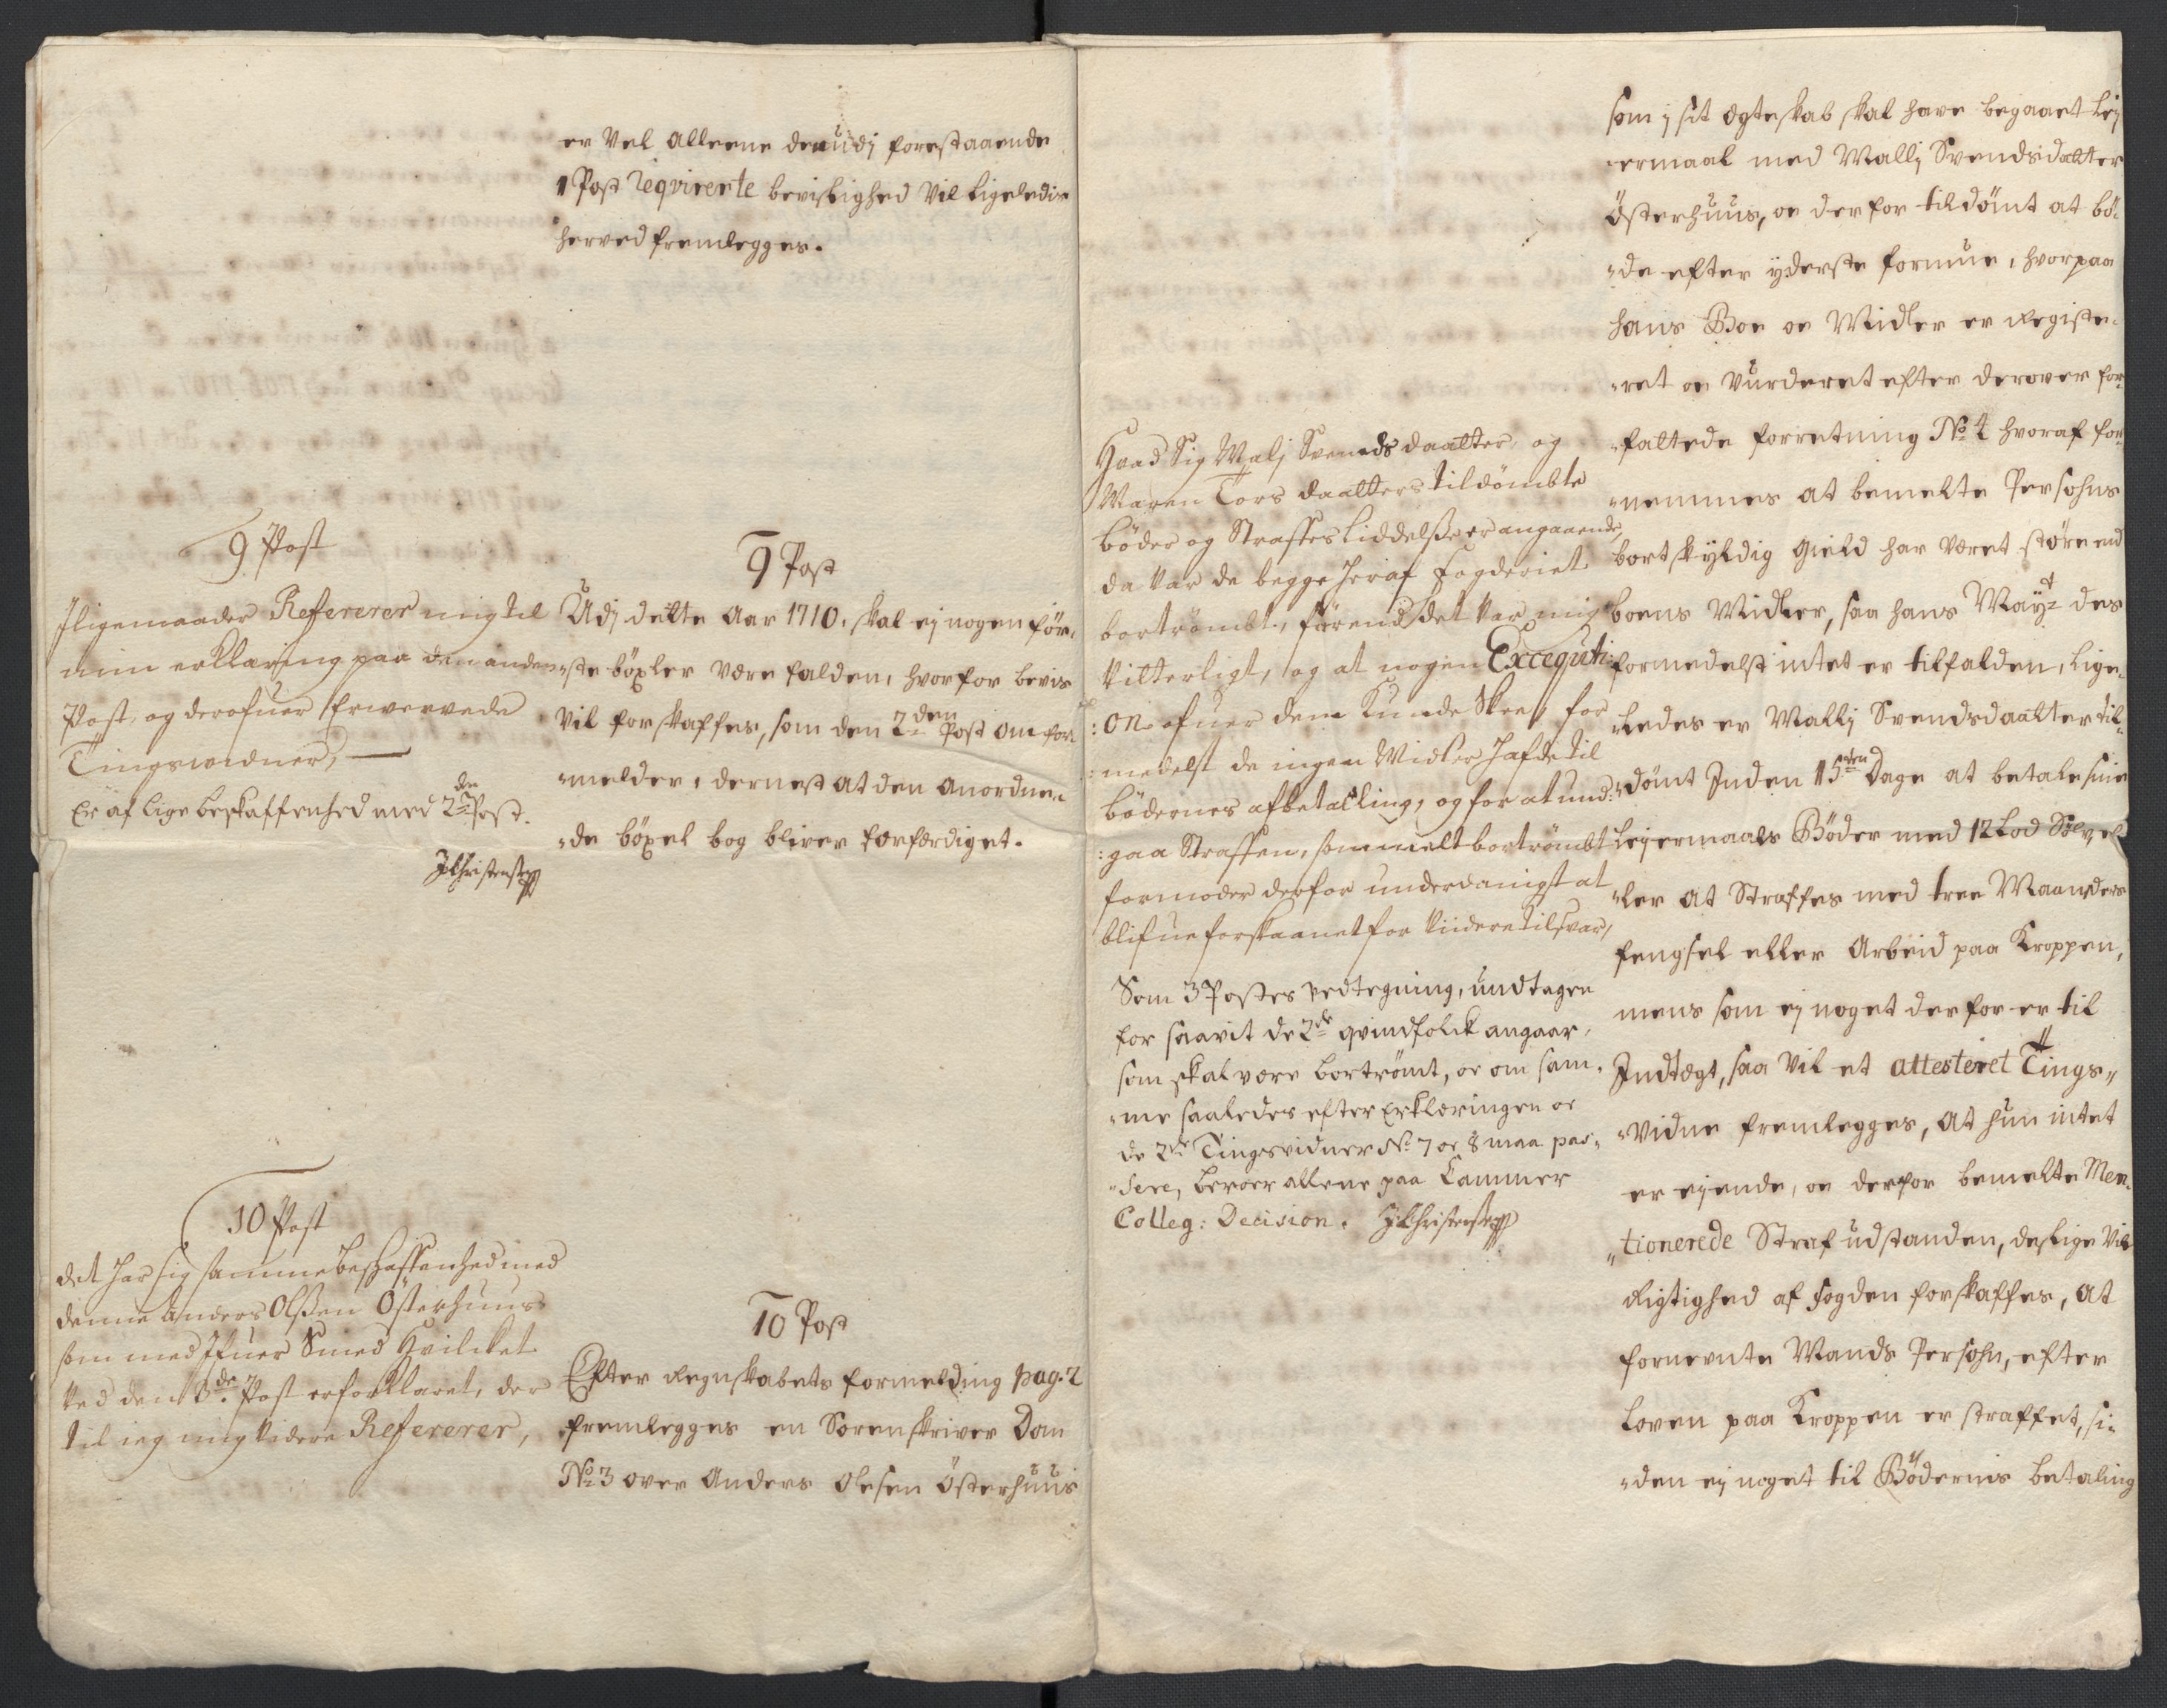 er Vel alleene den udj forestaaende
1 Post reqvirerte bevislighed Vil ligeledis
herved fremlegges.
9 Post
Iligemaader Refererer mig til
min erklaring paa den anden
Post, og derofuer Erwervede
Tingswidner,
Er af lige beskaffenhed med 2den Post.
JChristens
9 Post
Udj dette Aar 1710. skal ej nogen før-
ste böxler være falden, hvorfor bevis
Vil forskaffes, som den 2den Post om for-
melder, dernest at den anordne-
de böxel bog bliver forferdiget.
10 Post
det har sig samme beskaffenhed med
denne Anders Olßen Österhuus
som med Ifuer Smed Hvilcket
ved den 3de Post er forklaret, der
til ieg mig videre Refererer,
10 Post
Efter Regnskabets formelding pag. 2
fremlegges en Sorenskriver Dom
No 3 over Anders Olesen Österhuus
Hvad Sig Malj Svends daatter, og
Maren Tors daatters tildömbte
böder og Straffes liddelße er angaaende,
da var de begge heraf Fogderiet
bortrömbt, förend det var mig
Vitterligt, og at nogen Exceqvti-
on ofuer dem Kunde Skee, for
medelst de ingen Midler hafde til
bödernes afbetalling, og for at und-
gaa Straffen, som melt bortrömbt
formoder derfor underdanigst at
blifue forskaanet for videre tilsvar,
Som 3 Postes vedtegning, undtagen
for saavit de 2de qvindfolck angaar,
som skal være bortrömt, oc om sam-
me saaledes efter Erklæringen oc
de 2de Tingsvidner No 7 oc 8 maa pas-
sere, beroer allene paa Cammer
Colleg: Decision. JChristens
som j sit ægteskab skal have begaaet Lej
ermaal med Mallj Svendsdaatter
Österhuus, oc derfor tildömt at bö-
de efter yderste formue, hvorpaa
hans Boe oc Midler er Registe-
ret oc Vurderet efter derover for-
fattede forretning No 4 hvoraf for-
nemmes at bemelte Persohns
bortskyldig gield har været större end
boens Midler, saa hans Mayt des
formedelst intet er tilfalden, Lige-
ledes er Mallj Svendsdaatter til-
dömt Inden 15ten Dage at betale sine
Lejermaals Böder med 12 Lod Sölv, el
ler at Straffes med tree Maaneders
fengsel eller Arbeid paa Kroppen,
mens som ej noget derfor er til
Indtægt, saa Vil et attesteret Tings-
Vidne fremlegges, at hun intet
er ejende, oc derfor bemelte Men-
tionerede Straf udstanden, deslige Vil
Rigtighed af fogden forskaffes, at
fornevnte Mands Persohn, efter
Loven paa Kroppen er straffet, si-
den ej noget til Bödernis betaling